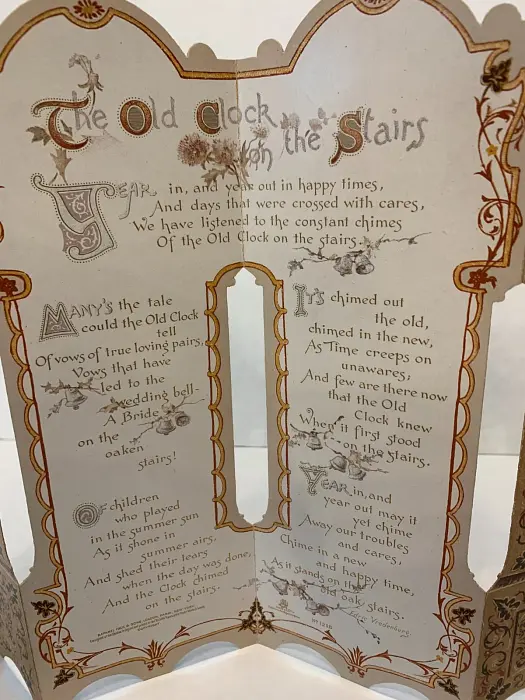 The Old Clock
on the Stairs
YEAR in, and year out in happy times,
And days that were crossed with cares,
We have listened to the constant chimes
Of the Old Clock on the stairs.
MANY'S the tale
could the Old Clock
tell
Of vows of true loving pairs,
Vows that have
led to the
wedding bell-
A Bride
on the
oaken
stairs!
OF children
who played
in the summer sun
As it shone in
summer airs,
And shed their tears
when the day was done,
And the Clock chimed
on the stairs.
IT'S chimed out
the old,
chimed in the new,
As Time creeps on
unawares;
And few are there now
that the Old
Clock knew
When it first stood
on the stairs.
YEAR in, and
year out may it
yet chime
Away our troubles
and cares,
Chime in a new
and happy time,
As it stands on the
old oak stairs.
Vredenburg